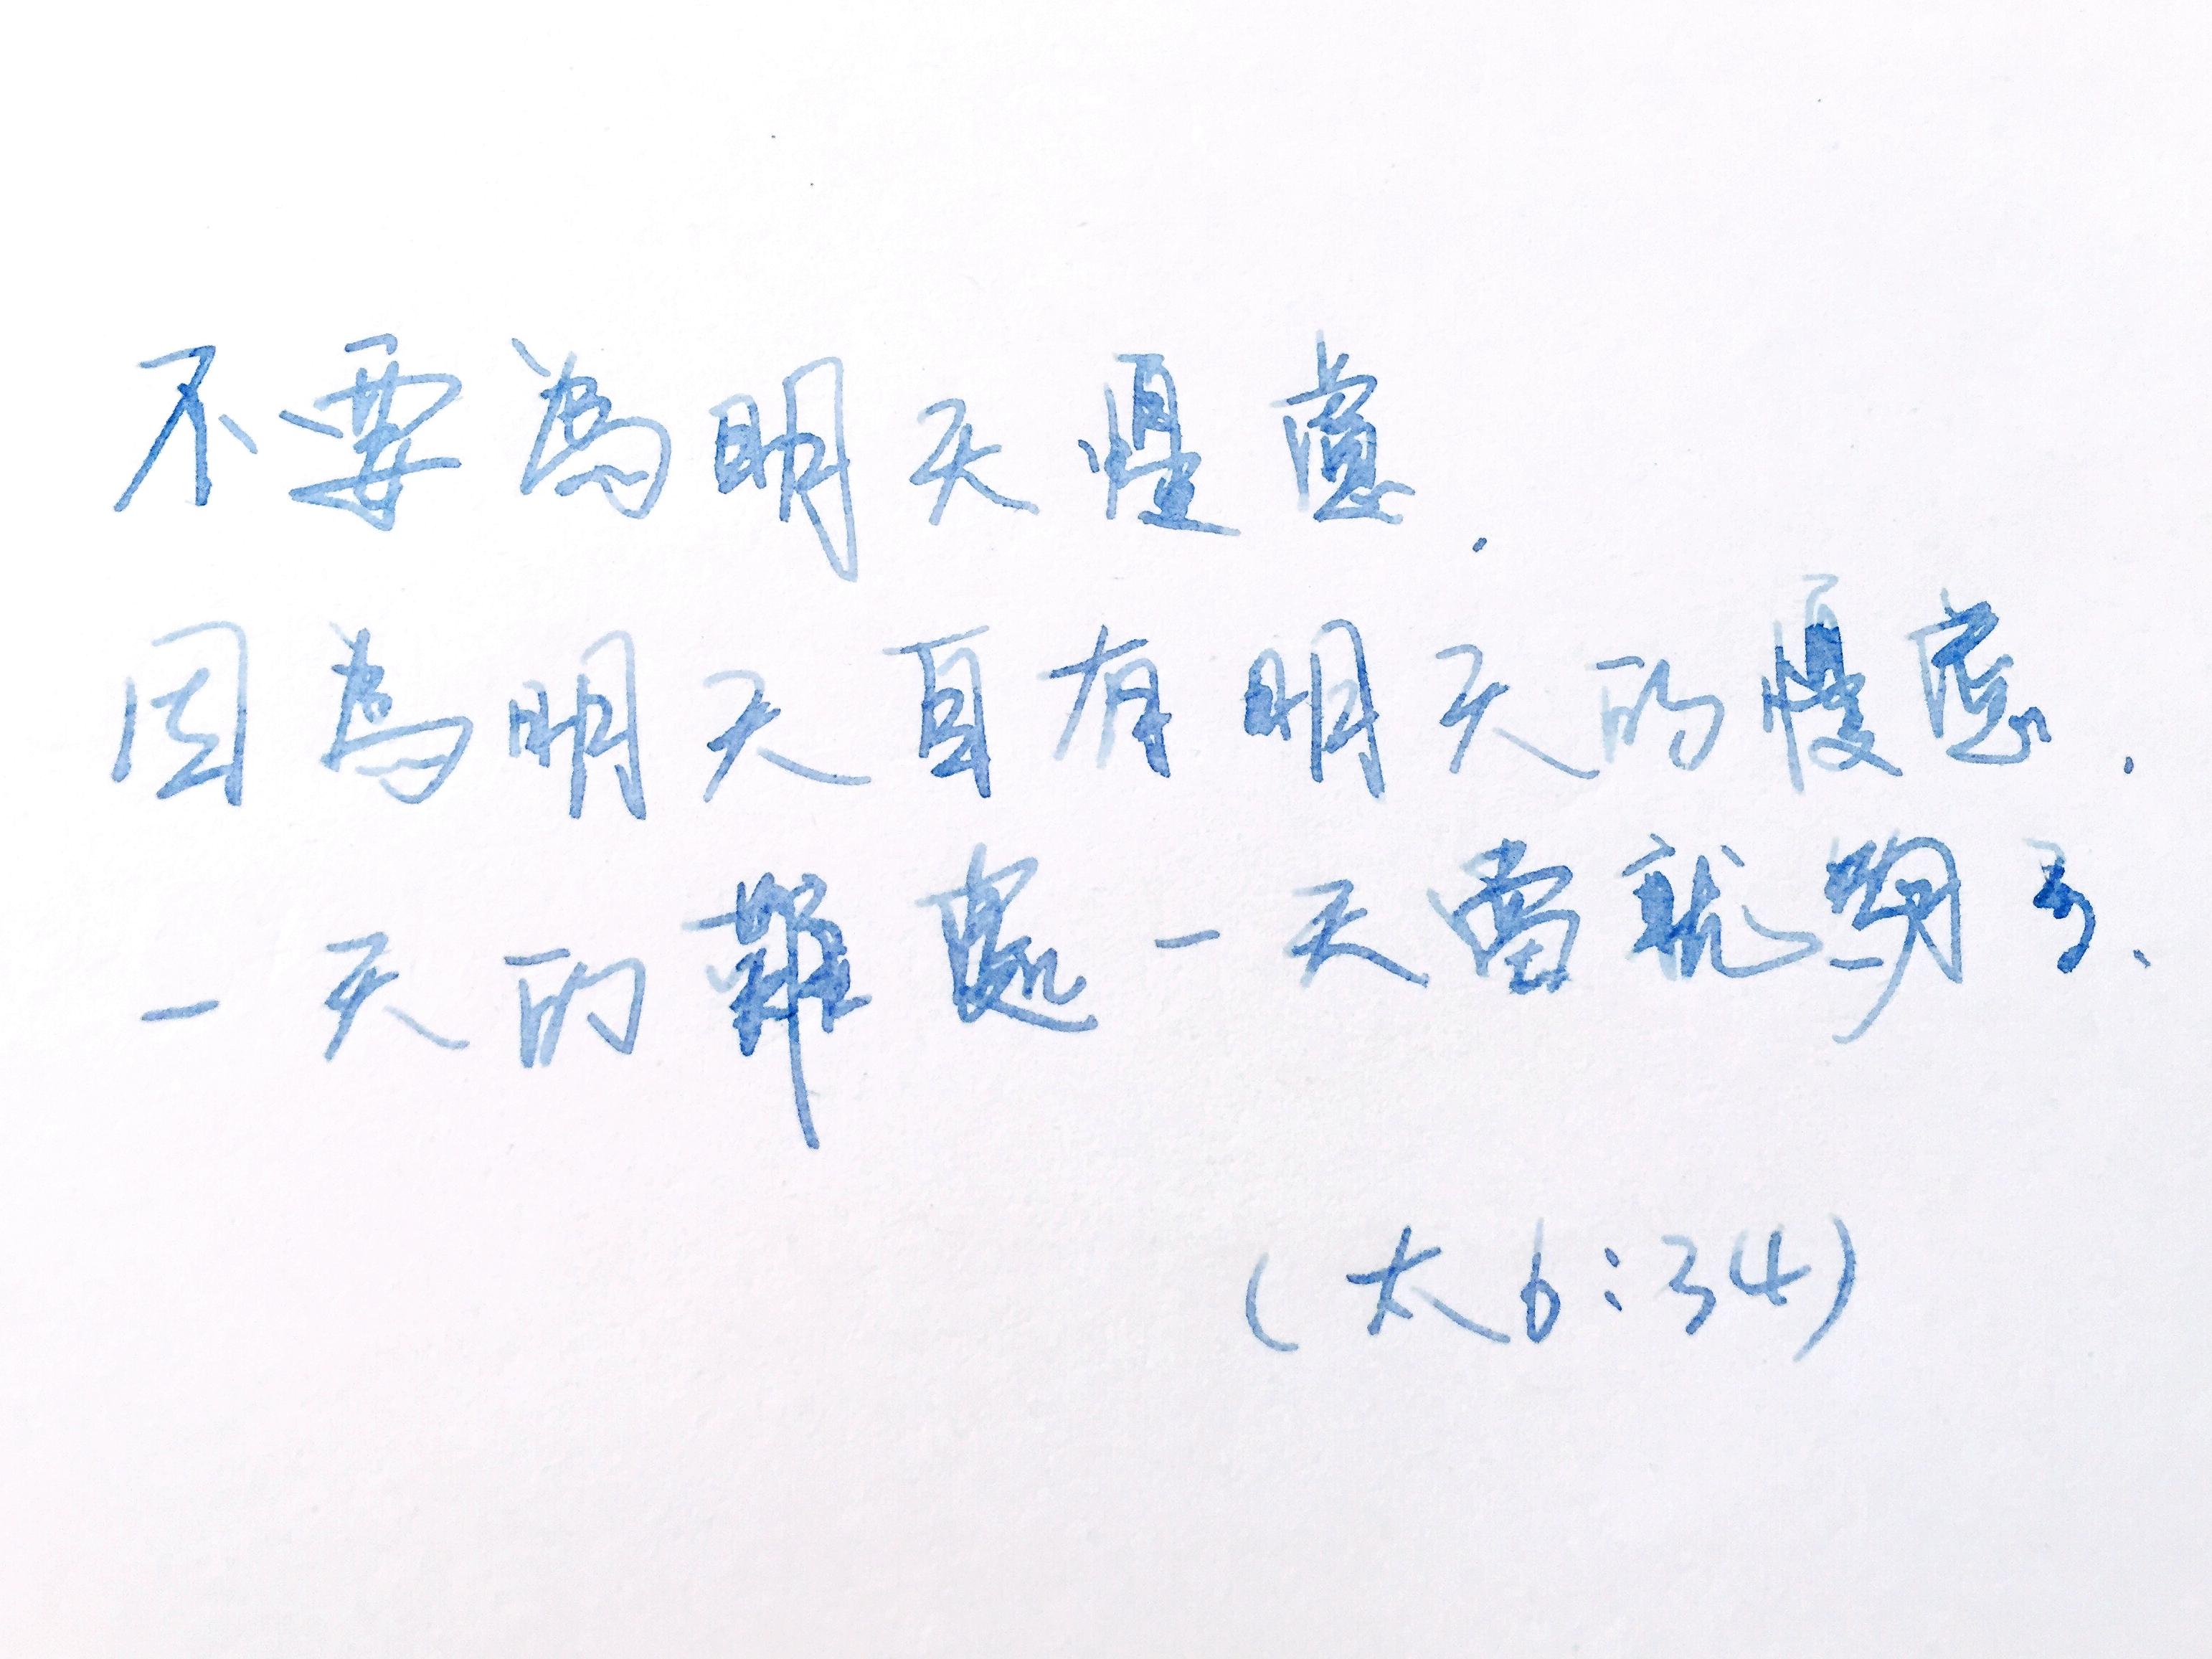 不要為明天憂慮.
因為明天自有明天的憂慮.
一天的難處一天當就夠了、
(太6:34)